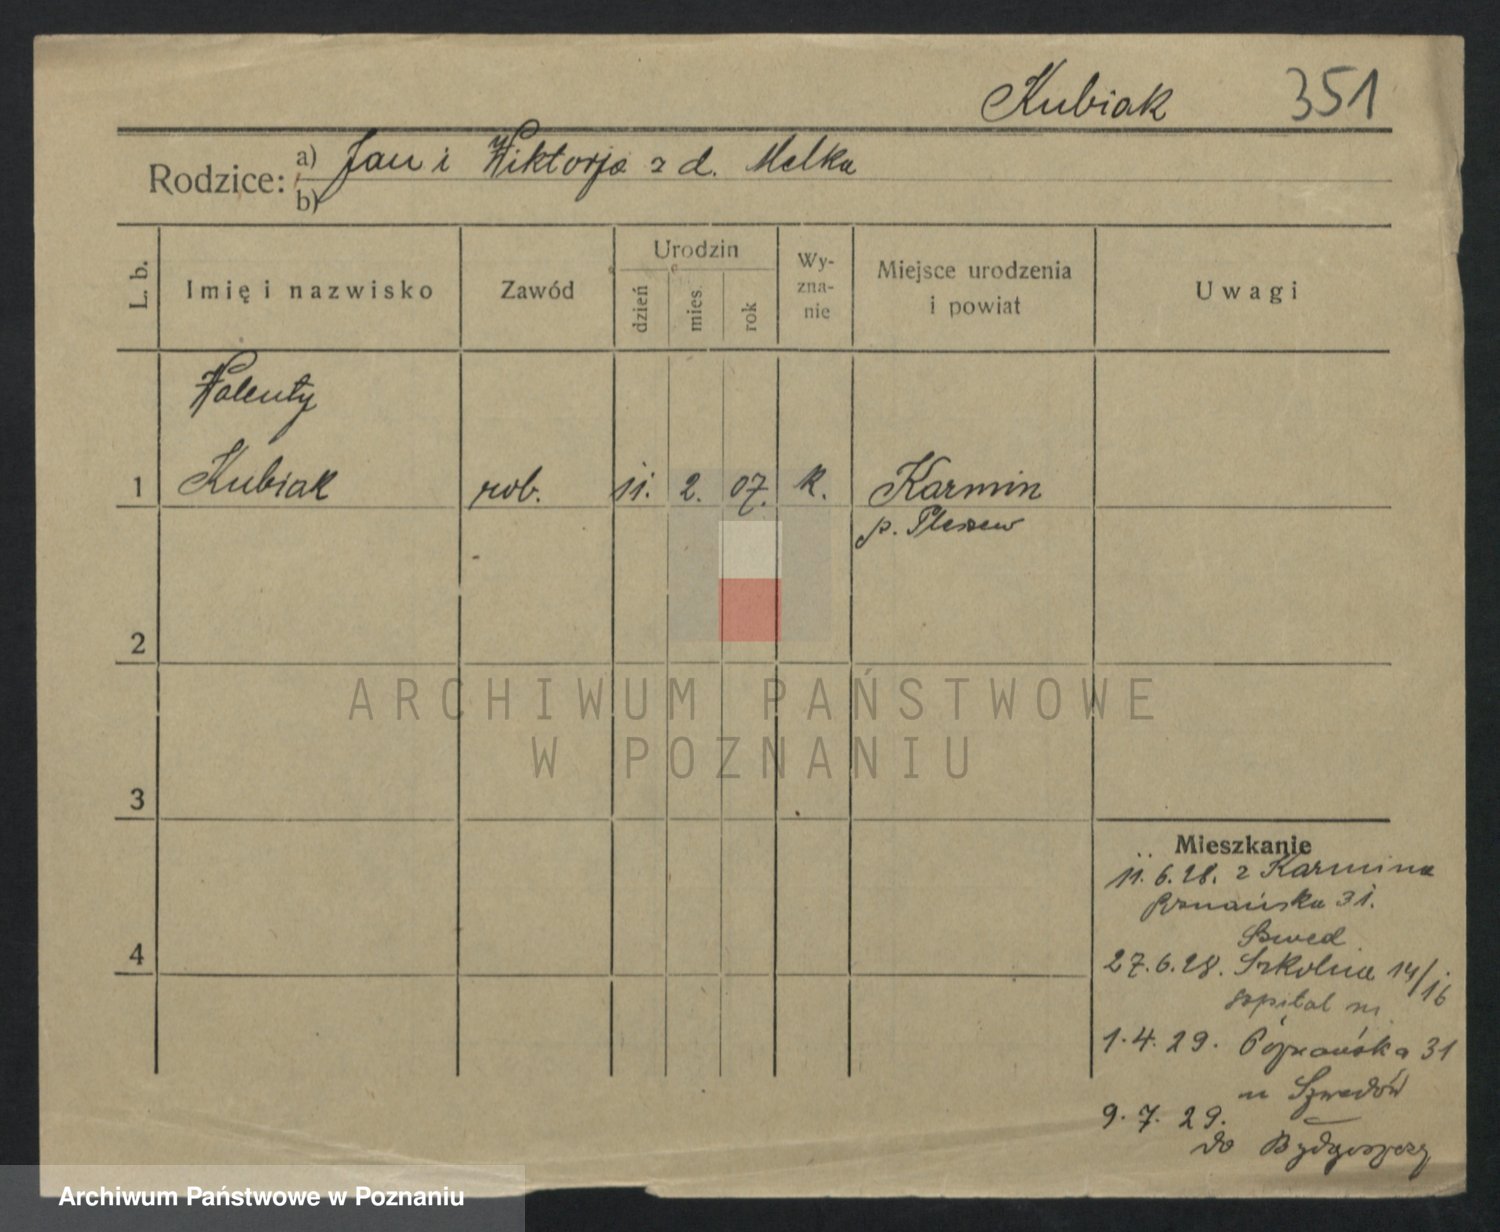 Kubiak 351
Rodzice: a) Jan i Wiktorja z d. Malka
b)
L. b.
Imię i nazwisko
Zawód
Urodzin
dzień
mies.
rok
Wy-
zna-
nie
Miejsce urodzenia
i powiat
Uwagi
Walenty
1 Kubiak rob. 11. 2. 07. k. Karmin
p. Pleszew
2
3
4
ARCHIWUM PAŃSTWOWE
W POZNANIU
Mieszkanie
11. 6. 28. z Karmina
Poznańska 31.
Szwed
27. 6. 28. Szkolna 14/16
szpital m.
1. 4. 29. Poznańska 31
u Szwedów
9. 7. 29.
do Bydgoszczy
Archiwum Państwowe w Poznaniu